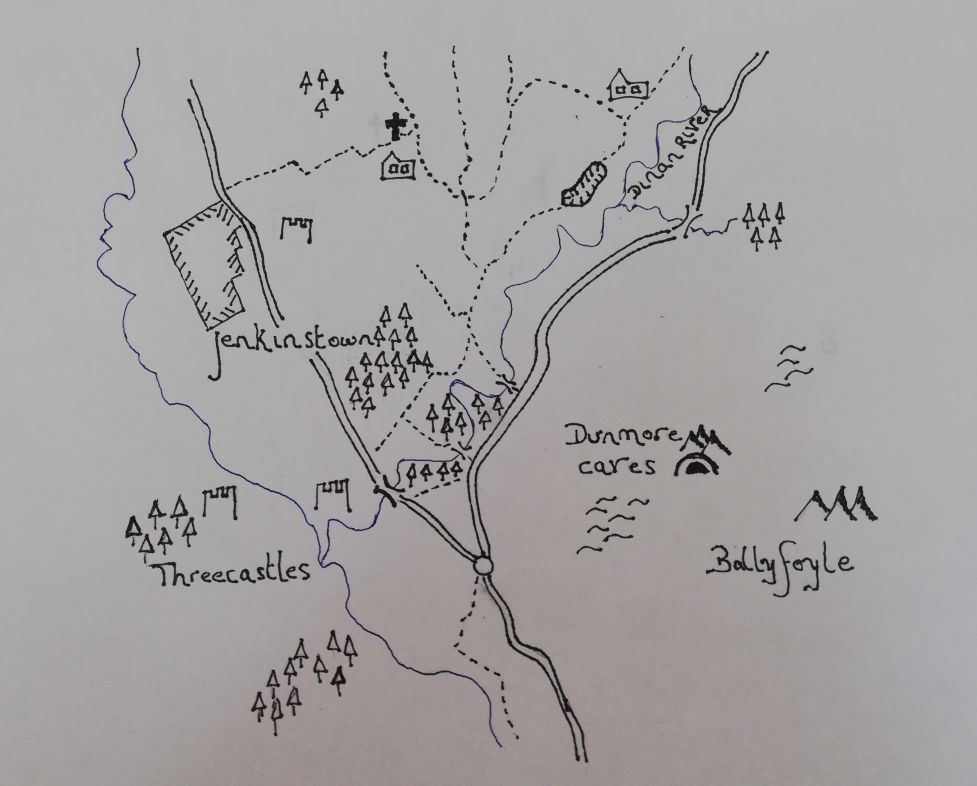 DINAN RIVER
Jenkinstown
Dunmore
caves
Threecastles
Ballyfoyle